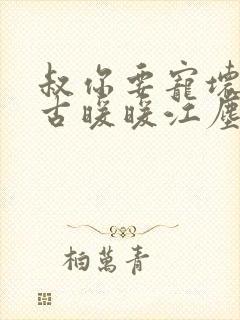 叔你要寵壞
古暖暖江塵
柏萬青